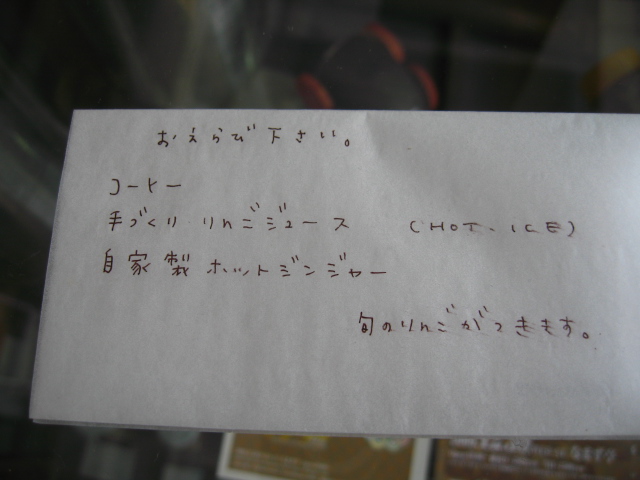 おえらび下さい。
コーヒー
手づくり りんごジュース (HOT・ICE)
自家製 ホットジンジャー
旬のりんごがつきます。